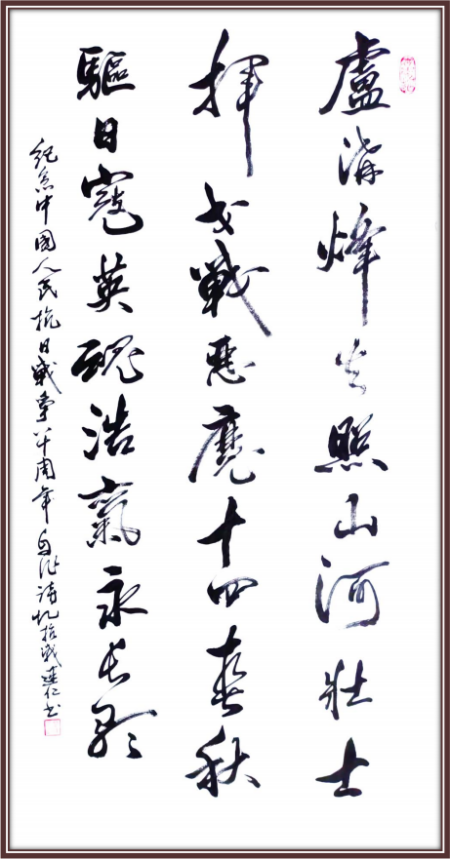 盧溝烽火照山河壯士
揮戈戰惡魔十四春秋
驅日寇英魂浩氣永長歌
紀念中國人民抗日戰爭八十周年自作詩憶抗戰建仁书